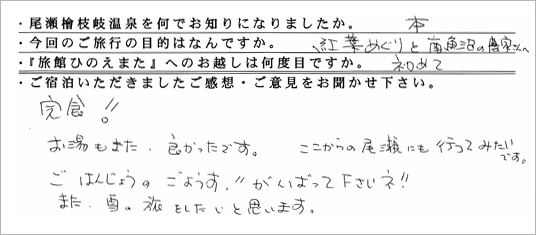 ・尾瀬檜枝岐温泉を何でお知りになりましたか。 本
・今回のご旅行の目的はなんですか。 紅葉めぐりと南魚沼の農家さんへ
・『旅館ひのえまた』へのお越しは何度目ですか。 初めて
・ご宿泊いただきましたご感想・ご意見をお聞かせ下さい。
完食!!
お湯もまた、良かったです。 ここからの尾瀬にも行ってみたいです。
ごはんじょうのごようす!! がんばって下さいネ!!
また、雪の旅をしたいと思います。